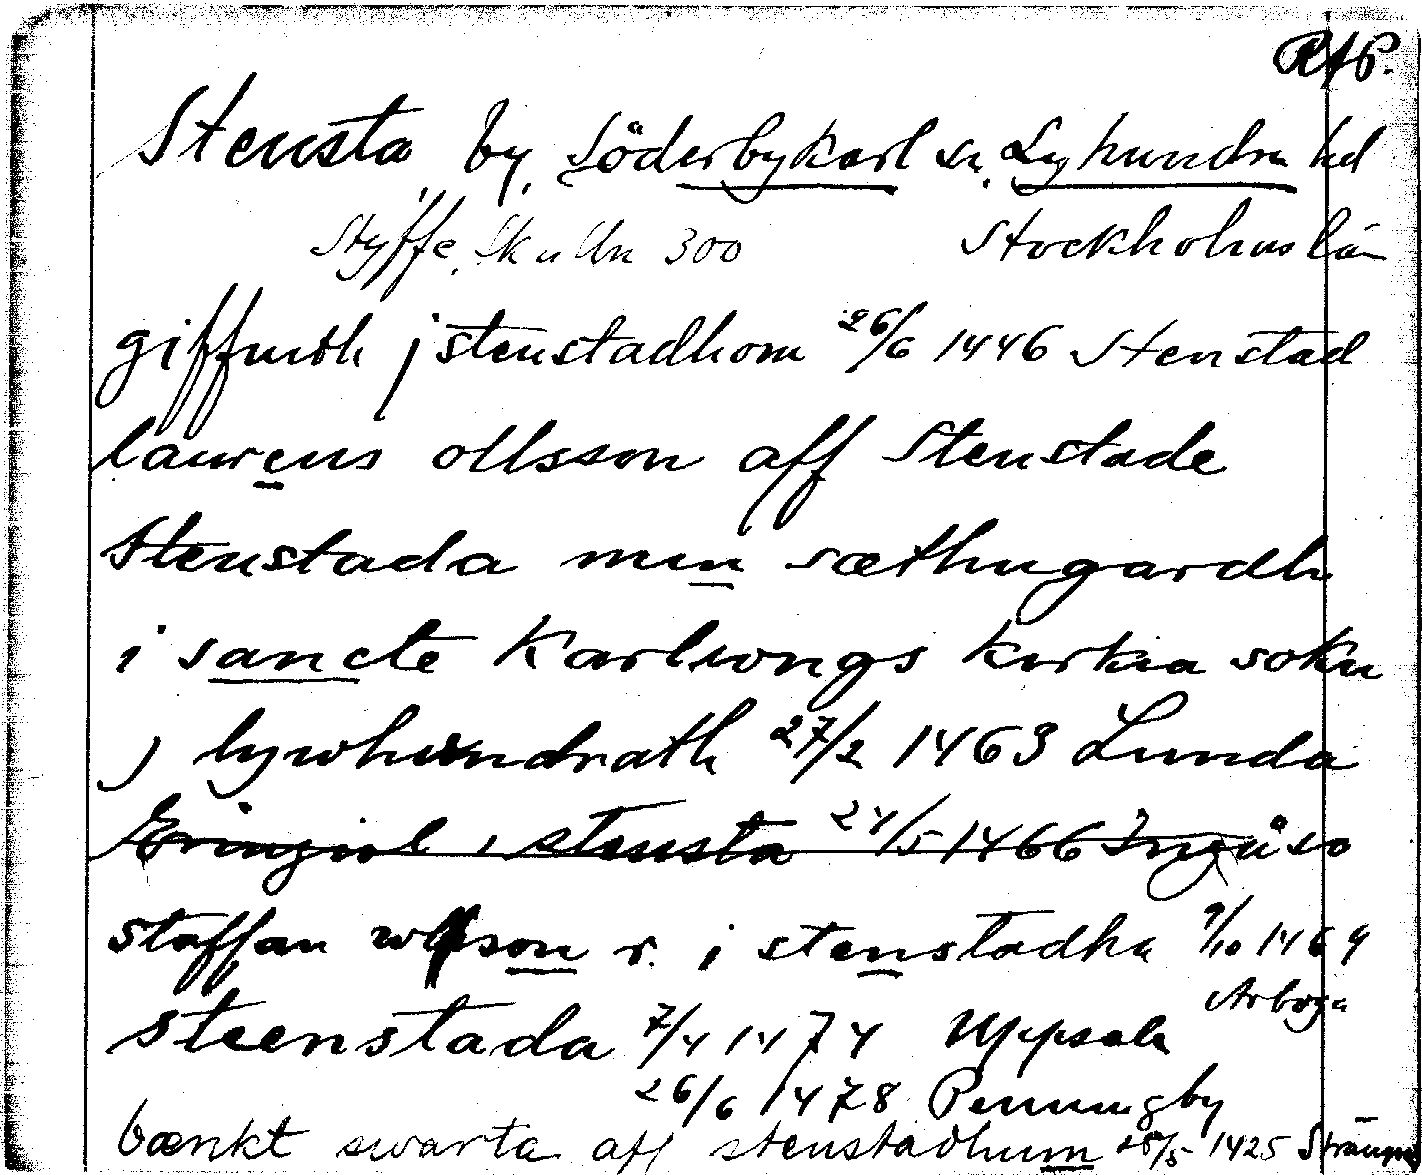 RAP.
Stensta by, Söderbykarl sn. Lyhundra hd
Styffe, Skulln 300 Stockholms län
giffuith j stenstadhom 26/6 1446 Stenstad
laurens ollsson aff Stenstade
Stenstada min sæthugardh
i sancte Karlungs kirkia sokn
j lywhundrath 27/2 1463 Lunda
i stensta 24/5 1466
staffan son r. i stenstadha 9/10 1469
Arboga
steenstada 7/4 1474 Uppsala
26/6 1478 Penningby
bænkt swarta aff stenstadhum 1425 Strängnä